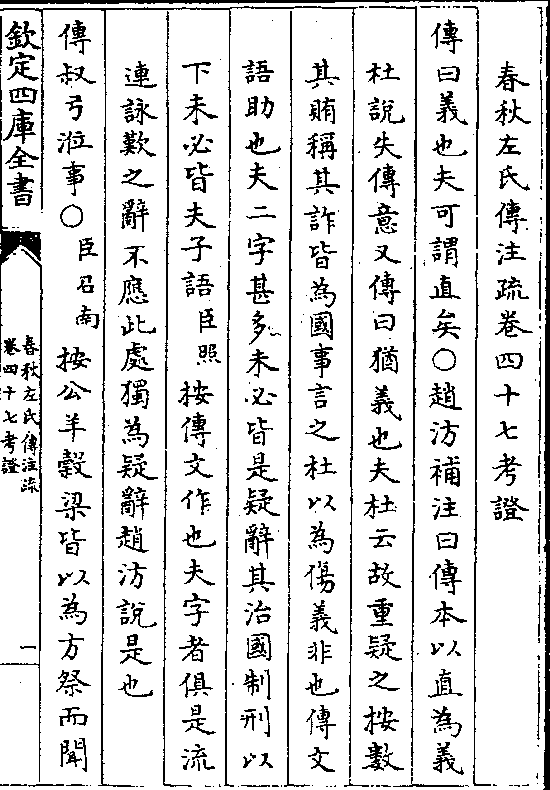 春秋左氏傳注疏卷四十七考證
傳曰義也夫可謂直矣○趙汸補注曰傳本以直為義
杜說失傳意又傳曰猶義也夫杜云故重疑之按數
其賄稱其詐皆為國事言之杜以為傷義非也傳文
語助也夫二字甚多未必皆是疑辭其治國制刑以
下未必皆夫子語臣照按傳文作也夫字者俱是流
連詠歎之辭不應此處獨為疑辭趙汸說是也
傳叔弓涖事○臣召南按公羊穀梁皆以為方祭而聞
欽定四庫全書
春秋左氏傳注疏
卷四十七考證
一